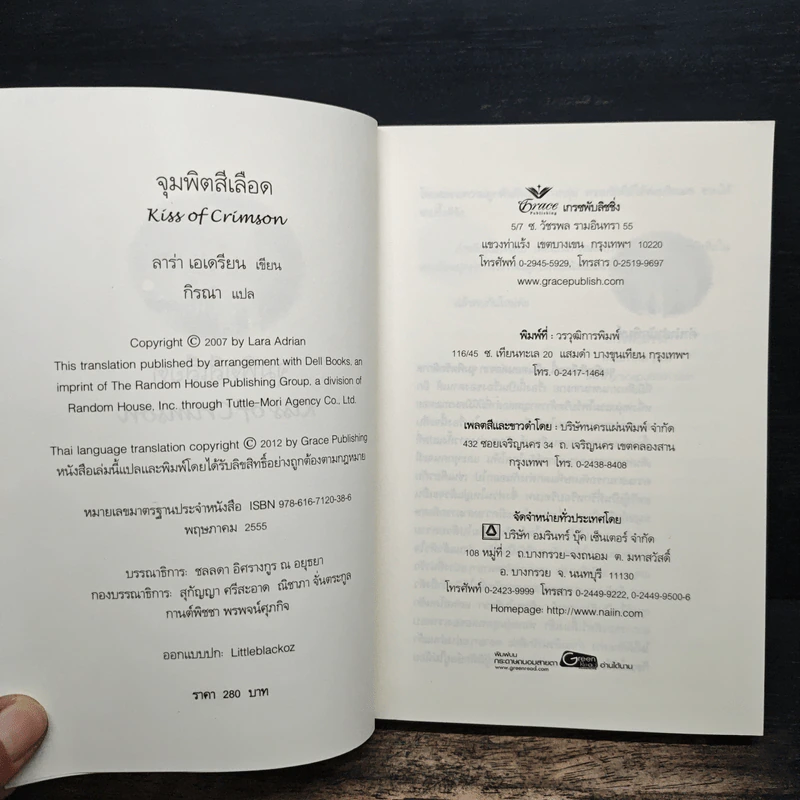 จุมพิตสีเลือด
Kiss of Crimson
ลาร่า เอเดรียน เขียน
กิรณา แปล
Copyright © 2007 by Lara Adrian
This translation published by arrangement with Dell Books, an
imprint of The Random House Publishing Group, a division of
Random House, Inc. through Tuttle-Mori Agency Co., Ltd.
Thai language translation copyright © 2012 by Grace Publishing
หนังสือเล่มนี้แปลและพิมพ์โดยได้รับลิขสิทธิ์อย่างถูกต้องตามกฎหมาย
หมายเลขมาตรฐานประจำหนังสือ ISBN 978-616-7120-38-6
พฤษภาคม 2555
บรรณาธิการ: ชลลดา อิศรางกูร ณ อยุธยา
กองบรรณาธิการ: สุกัญญา ศรีสะอาด ณิชาภา จั่นตระกูล
กานต์พิชชา พรพจน์ศุภกิจ
ออกแบบปก: Littleblackoz
ราคา 280 บาท
Grace Publishing เกรซพับลิชชิ่ง
5/7 ซ. วัชรพล รามอินทรา 55
แขวงท่าแร้ง เขตบางเขน กรุงเทพฯ 10220
โทรศัพท์ 0-2945-5929, โทรสาร 0-2519-9697
www.gracepublish.com
พิมพ์ที่ : วรวุฒิการพิมพ์
116/45 ซ. เทียนทะเล 20 แสมดำ บางขุนเทียน กรุงเทพฯ
โทร. 0-2417-1464
เพลตสีและขาวดำโดย : บริษัทนครแผ่นพิมพ์ จำกัด
432 ซอยเจริญนคร 34 ถ. เจริญนคร เขตคลองสาน
กรุงเทพฯ โทร. 0-2438-8408
จัดจำหน่ายทั่วประเทศโดย
บริษัท อมรินทร์ บุ๊ค เซ็นเตอร์ จำกัด
108 หมู่ที่ 2 ถ.บางกรวย-จงถนอม ต. มหาสวัสดิ์
อ. บางกรวย จ. นนทบุรี 11130
โทรศัพท์ 0-2423-9999 โทรสาร 0-2449-9222, 0-2449-9500-6
Homepage: http://www.naiin.com
พิมพ์บน
กระดาษถนอมสายตา Green Read อ่านได้นาน
www.greenread.com